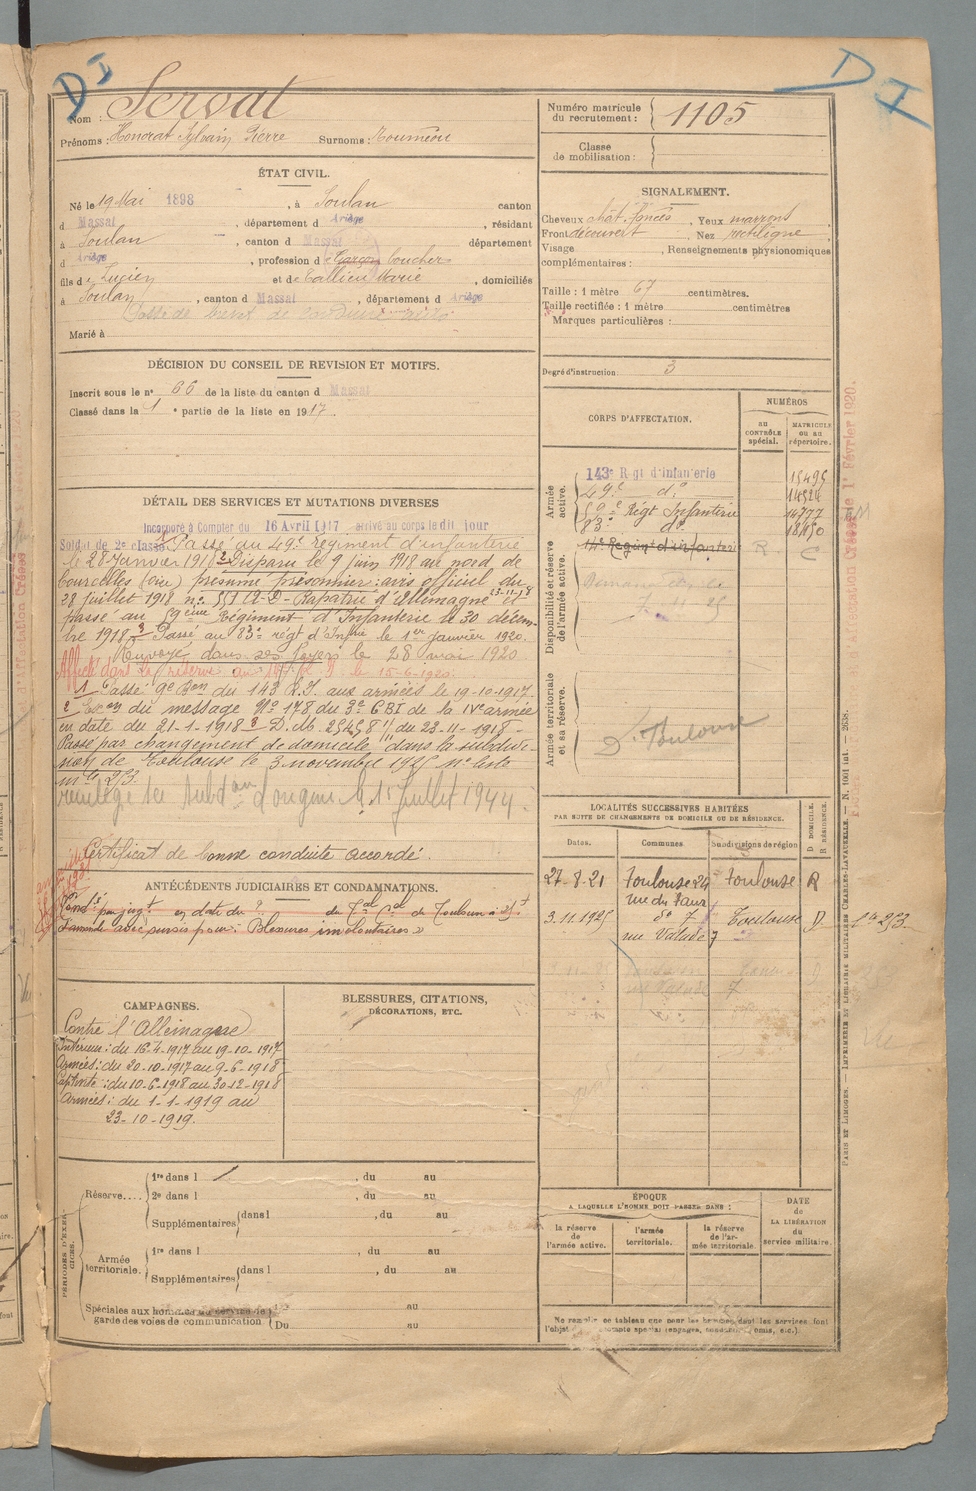 D I
D I
Nom : Servat
Prénoms : Honorat Sylvain Pierre Surnoms : Roumieou
ÉTAT CIVIL.
Né le 19 Mai 1898, à Soulan canton
d Massat, département d Ariège, résidant
à Soulan, canton d Massat département
d Ariège, profession de Garçon boucher
fils de Lucien et de Gallieu Marie, domiciliés
à Soulan, canton d Massat, département d Ariège
Marié à
DÉCISION DU CONSEIL DE REVISION ET MOTIFS.
Inscrit sous le n° 66 de la liste du canton d Massat
Classé dans la 1 e partie de la liste en 1917.
DÉTAIL DES SERVICES ET MUTATIONS DIVERSES
Incorporé à Compter du 16 Avril 1917 arrivé au corps le dit jour
Soldat de 2e classe. Passé au 49e régiment d'infanterie
le 28 Janvier 1918 2 Disparu le 9 juin 1918 au nord de
Courcelles (oise) présumé prisonnier: avis officiel du
28 juillet 1918 n° 551 A-D- Rapatrié d'Allemagne 23-11-18 et
passé au 59ème Régiment d'Infanterie le 30 décem-
bre 1918 3 Passé au 83e régt d'Infrie le 1er janvier 1920.
Renvoyé dans ses foyers le 28 mai 1920
Affecté dans la réserve au 14e R.I. le 15-6-1920.
1 Passé 9e Bon du 143 R.I. aux armées le 19-10-1917.
2 Exon du message N° 178 du 3e CBI de la IVe armée
en date du 21-1-1918 3 D.M. 25458 11/11 du 23-11-1918-
Passé par changement de domicile dans la subdivi-
sion de Toulouse le 3 novembre 1925 n° liste
mle 253.
réintégré sa subdon d'origine le 15 Juillet 1944.
Certificat de bonne conduite accordé.
ANTÉCÉDENTS JUDICIAIRES ET CONDAMNATIONS.
Condé par jugt en date du ? du Cal Cel de Toulouse à 25f
d'amende avec sursis pour: Blessures involontaires »
CAMPAGNES.
Contre l'Allemagne
Intérieur : du 16-4-1917 au 19-10-1917
Armées : du 20-10-1917 au 9-6-1918
Captivité : du 10-6-1918 au 30-12-1918
Armées : du 1-1-1919 au
23-10-1919.
BLESSURES, CITATIONS,
DÉCORATIONS, ETC.
PÉRIODES D'EXERCICES.
Réserve....
1re dans l , du au
2e dans l , du au
Supplémentaires dans l , du au
Armée territoriale.
1re dans l , du au
Supplémentaires dans l , du au
Spéciales aux hommes du service de
garde des voies de communication Du au
au
Numéro matricule
du recrutement : 1105
Classe
de mobilisation :
SIGNALEMENT.
Cheveux chât. foncés, Yeux marrons
Front découvert, Nez rectiligne
Visage , Renseignements physionomiques
complémentaires :
Taille : 1 mètre 67 centimètres.
Taille rectifiée : 1 mètre centimètres
Marques particulières :
Degré d'instruction : 3
CORPS D'AFFECTATION.
NUMÉROS
au CONTRÔLE spécial.
MATRICULE ou au répertoire.
Armée active.
143e Régt d'Infanterie 15495
49e do 14524
59e Régt Infanterie 14777
83e do 18150
Disponibilité et réserve de l'armée active.
14e Régiment d'infanterie R. C
7-11-25
Armée territoriale et sa réserve.
D. Toulouse
LOCALITÉS SUCCESSIVES HABITÉES
PAR SUITE DE CHANGEMENTS DE DOMICILE OU DE RÉSIDENCE.
Dates. Communes Subdivisions de région D DOMICILE. R RÉSIDENCE.
27-8-21 Toulouse 24 Toulouse R
rue du Taur
3.11.1925 do 7 Toulouse D Lte 253
rue Valade 7
ÉPOQUE
A LAQUELLE L'HOMME DOIT PASSER DANS :
la réserve de l'armée active.
l'armée territoriale.
la réserve de l'armée territoriale.
DATE
de
LA LIBÉRATION
du
service militaire.
Ne remplir ce tableau que pour les hommes dont les services font
l'objet d'un compte spécial (engagés, condamnés, omis, etc.)
PARIS ET LIMOGES. — IMPRIMERIE ET LIBRAIRIE MILITAIRES CHARLES-LAVAUZELLE. — N. 1001 int. — 2638.